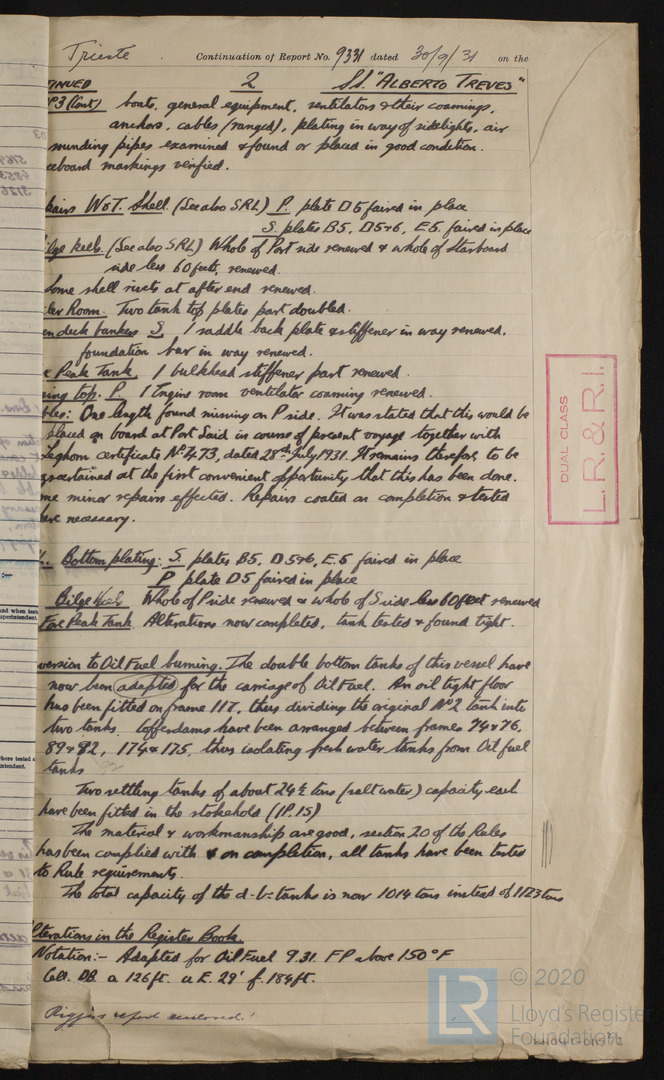 Trieste Continuation of Report No. 9331 dated 30/9/31 on the
TINUED 2 S.S. "ALBERTO TREVES"
P3 (Cont) boats, general equipment, ventilators & their coamings,
anchors, cables (ranged), plating in way of sidelights, air
sounding pipes examined & found or placed in good condition.
eeboard markings verified.
pairs W&T. Shell. (See also SRL) P. plate D5 faired in place
S. plates B5, D5&6, E5 faired in place
ilge keels. (See also SRL) Whole of Port side renewed & whole of Starboard
side less 60 feet, renewed.
Some shell rivets at after end renewed.
iler Room. Two tank top plates part doubled.
en deck bunkers S. 1 saddle back plate & stiffener in way renewed.
foundation bar in way renewed.
e Peak Tank. 1 bulkhead stiffener part renewed.
ing top. P. 1 Engine room ventilator coaming renewed.
bles: One length found missing on P side. It was stated that this would be
placed on board at Port Said in course of present voyage together with
Leghorn certificate No 473, dated 28th July 1931. It remains therefore to be
ascertained at the first convenient opportunity that this has been done.
me minor repairs effected. Repairs coated on completion & tested
ere necessary.
L. Bottom plating: S. plates B5, D5&6, E.5 faired in place
P plate D5 faired in place
Bilge Keels Whole of P side renewed & whole of S side less 60 feet renewed
Fore Peak Tank. Alterations now completed, tank tested & found tight.
version to Oil Fuel burning. The double bottom tanks of this vessel have
now been adapted for the carriage of Oil Fuel. An oil tight floor
has been fitted on frame 117, thus dividing the original No 2 tank into
two tanks. Cofferdams have been arranged between frames 74 & 76,
89 & 92, 174 & 175, thus isolating fresh water tanks from Oil fuel
tanks 92
Two settling tanks of about 24½ tons (salt water) capacity each
have been fitted in the stokehold (1P.1S)
The material & workmanship are good, section 20 of the Rules
has been complied with & on completion, all tanks have been tested
to Rule requirements.
The total capacity of the d-b-tanks is now 1014 tons instead of 1123 tons
lterations in the Register Book.
Notation:- Adapted for Oil Fuel 9.31. FP above 150°F
Cell. DB. a 126ft. u E. 29' f. 184ft.
Rigging report enclosed.
DUAL CLASS
L.R. & R.I.
and when tested
uperintendent.
here tested
ntendent.
LR
© 2020
Lloyd's Register
Foundation